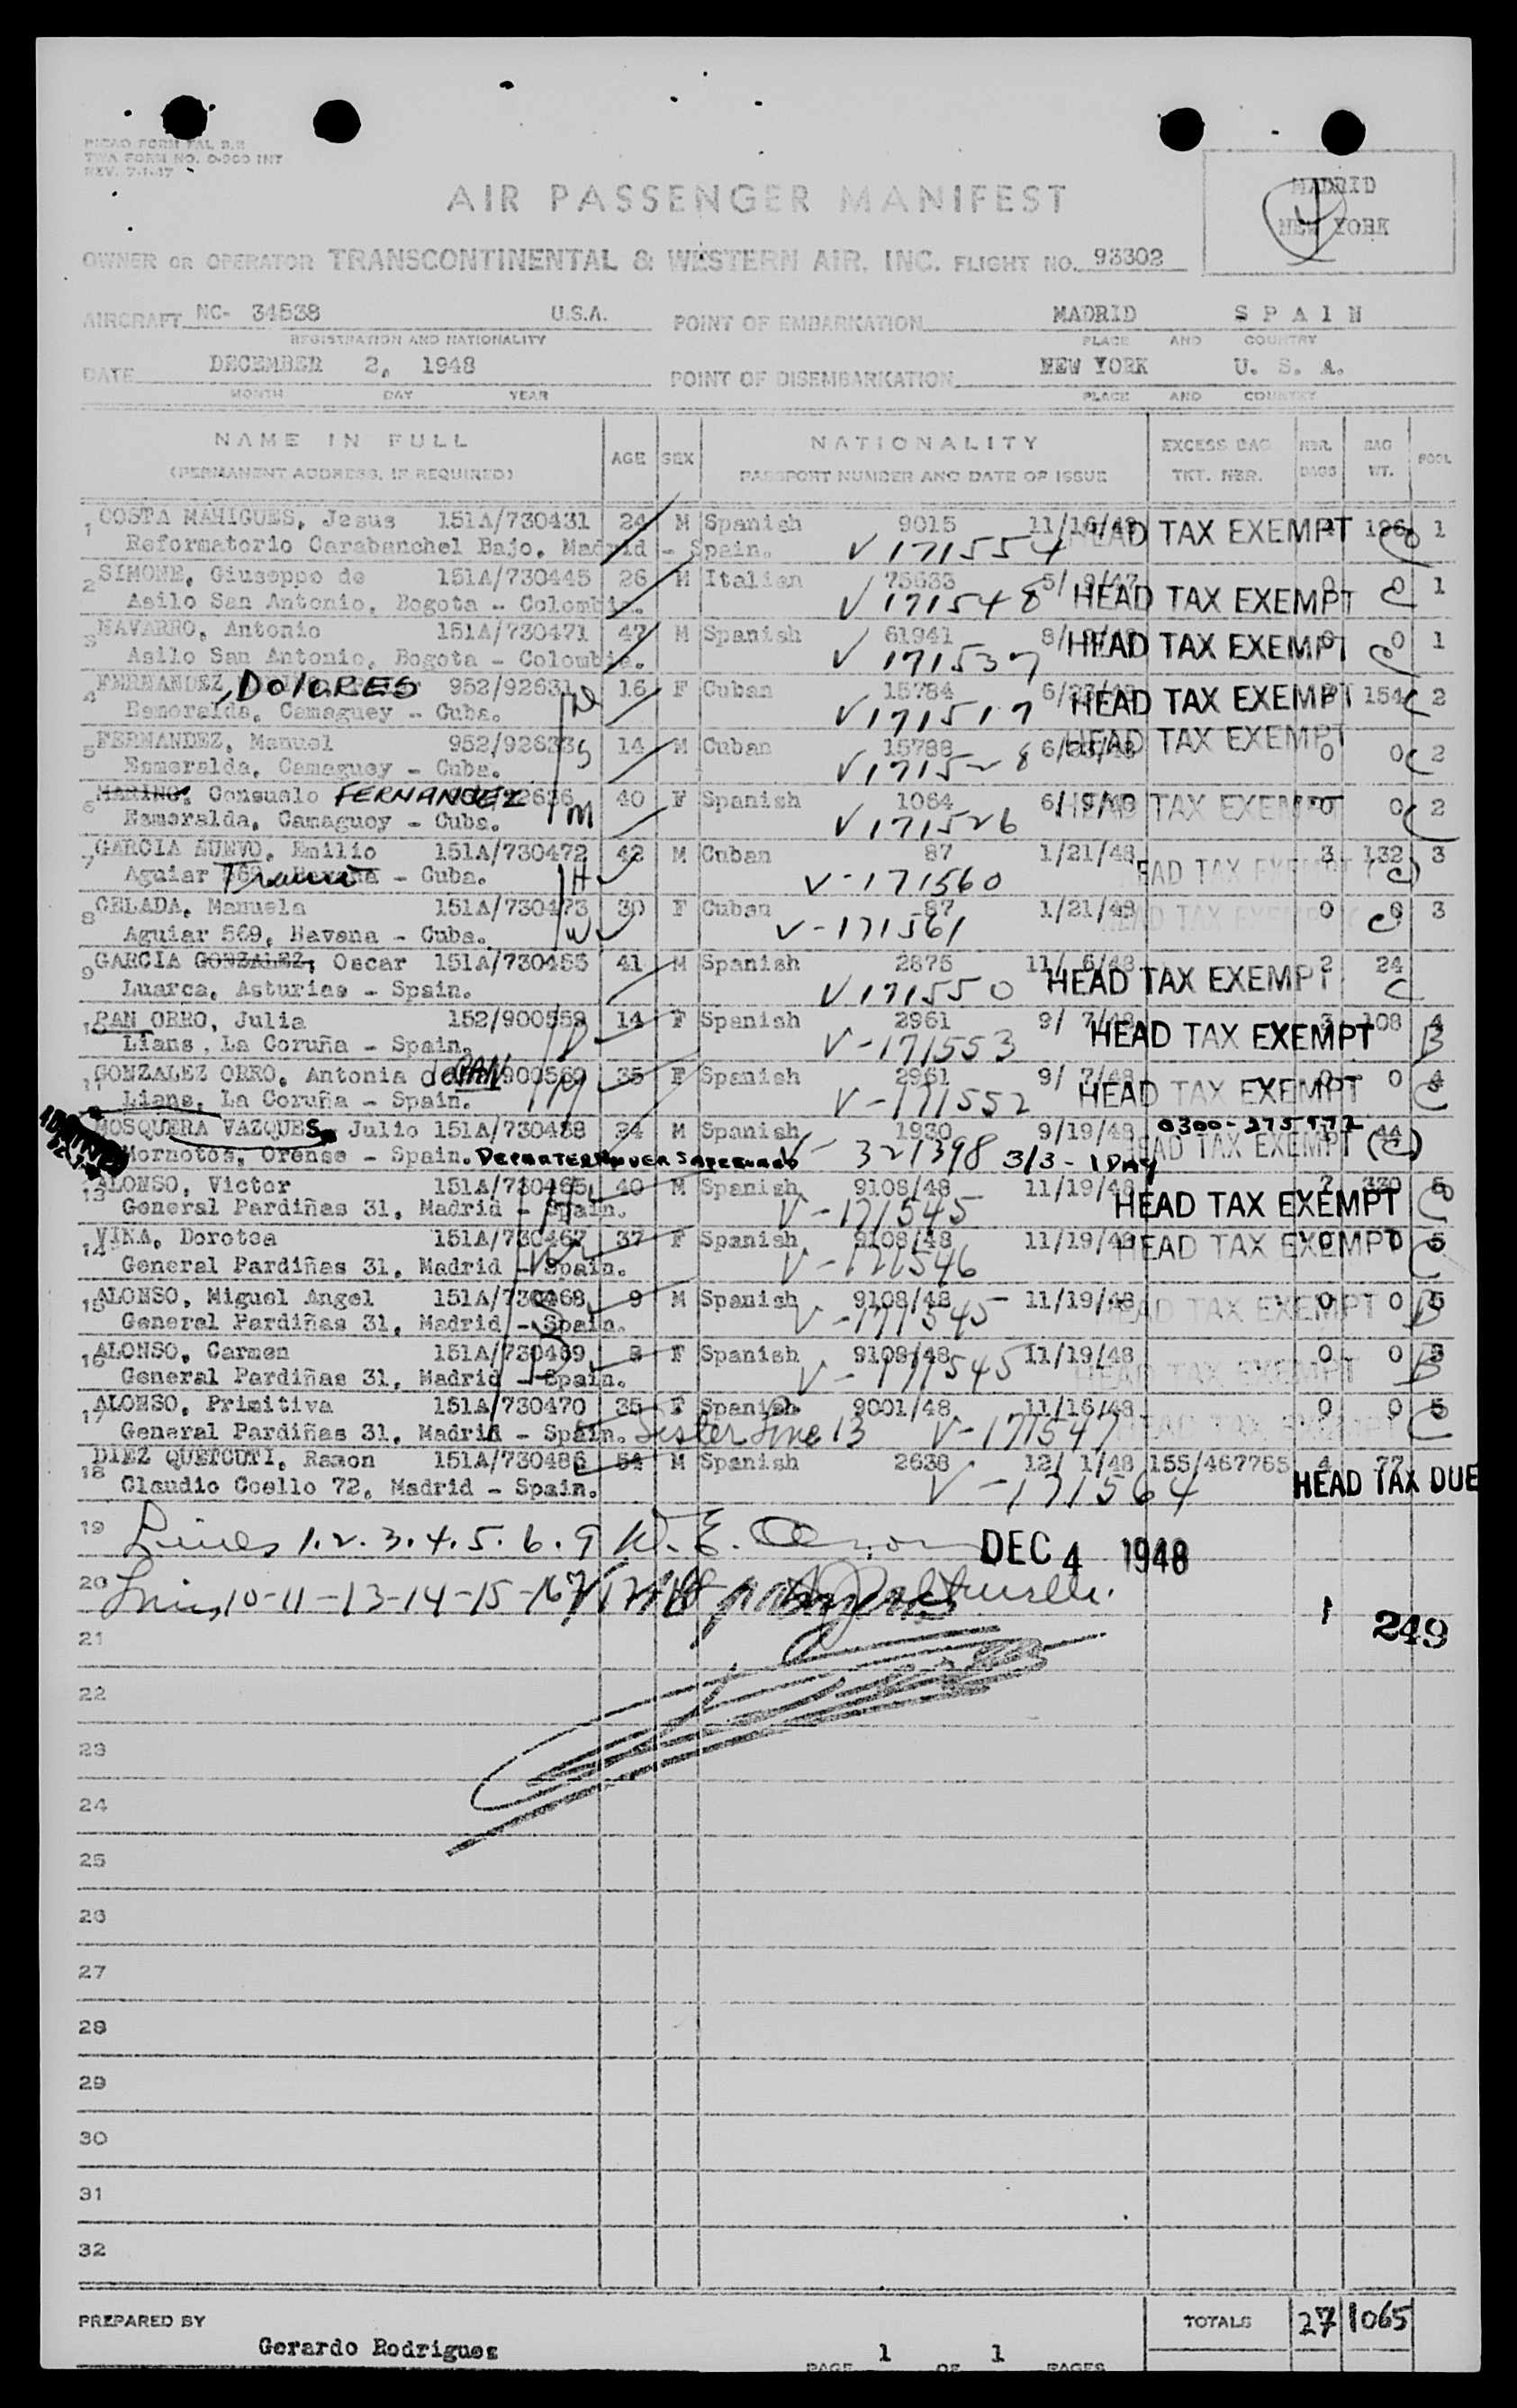 PICAO FORM FAL 2.2
TWA FORM NO. O-900 INT
REV. 7-1-47
AIR PASSENGER MANIFEST
MADRID
NEW YORK
OWNER OR OPERATOR TRANSCONTINENTAL & WESTERN AIR, INC. FLIGHT NO. 93302
AIRCRAFT NC- 34538 U.S.A. POINT OF EMBARKATION MADRID SPAIN
REGISTRATION AND NATIONALITY PLACE AND COUNTRY
DATE DECEMBER 2, 1948 POINT OF DISEMBARKATION NEW YORK U. S. A.
MONTH DAY YEAR PLACE AND COUNTRY
NAME IN FULL AGE SEX NATIONALITY EXCESS BAG NBR. BAG POOL
(PERMANENT ADDRESS, IF REQUIRED) PASSPORT NUMBER AND DATE OF ISSUE TKT. NBR. BAGS WT.
1 COSTA MAHIGUES, Jesus 151A/730431 24 M Spanish 9015 11/16/48 HEAD TAX EXEMPT 186 1
Reformatorio Carabanchel Bajo, Madrid - Spain. V 171554
2 SIMONE, Giuseppe de 151A/730445 26 M Italian 75633 5/ 9/47 0 0 1
Asilo San Antonio, Bogota - Colombia. V 171548 HEAD TAX EXEMPT C
3 NAVARRO, Antonio 151A/730471 47 M Spanish 61941 HEAD TAX EXEMPT 0 0 1
Asilo San Antonio, Bogota - Colombia. V 171537 C
4 FERNANDEZ, DOLORES 952/92631 16 F Cuban 15784 HEAD TAX EXEMPT 154 C 2
Esmeralda, Camaguey - Cuba. V 171517
5 FERNANDEZ, Manuel 952/92633 S 14 M Cuban 15788 HEAD TAX EXEMPT 0 0 C 2
Esmeralda, Camaguey - Cuba. V 171528
6 MARINO, Consuelo FERNANDEZ 40 F Spanish 1064 6/ 9/48 HEAD TAX EXEMPT 0 0 2
Esmeralda, Camaguey - Cuba. M V 171526 C
7 GARCIA NUEVO, Emilio 151A/730472 42 M Cuban 87 1/21/48 3 132 3
Aguiar - Cuba. H V-171560 HEAD TAX EXEMPT C
8 CELADA, Manuela 151A/730473 30 F Cuban 87 1/21/48 HEAD TAX EXEMPT 0 0 3
Aguiar 569, Havana - Cuba. W V-171561 C
9 GARCIA GONZALEZ, Oscar 151A/730455 41 M Spanish 2875 11/ 6/48 2 24
Luarca, Asturias - Spain. V 171550 HEAD TAX EXEMPT C
10 PAN ORRO, Julia 152/900559 14 F Spanish 2961 9/ 7/48 3 108 4
Lians, La Coruña - Spain. D V-171553 HEAD TAX EXEMPT B
11 GONZALEZ ORRO, Antonia de PAN 900560 35 F Spanish 2961 9/ 7/48 0 0 4
Lians, La Coruña - Spain. M V-171552 HEAD TAX EXEMPT C
MOSQUERA VAZQUES, Julio 151A/730488 24 M Spanish 1930 9/19/48 44
Mornotos, Orense - Spain. V-321398 3/3 - 1 DAY HEAD TAX EXEMPT (C)
13 ALONSO, Victor 151A/730465 40 M Spanish 9108/48 11/19/48 7 330 5
General Pardiñas 31, Madrid - Spain. H V-171545 HEAD TAX EXEMPT C
14 VINA, Dorotea 151A/730467 37 F Spanish 9108/48 11/19/48 HEAD TAX EXEMPT 0 0 5
General Pardiñas 31, Madrid - Spain. W V-171546 C
15 ALONSO, Miguel Angel 151A/730468 9 M Spanish 9108/48 11/19/48 HEAD TAX EXEMPT 0 0 5
General Pardiñas 31, Madrid - Spain. S V-171545 B
16 ALONSO, Carmen 151A/730469 8 F Spanish 9108/48 11/19/48 0 0 5
General Pardiñas 31, Madrid - Spain. D V-171545 HEAD TAX EXEMPT B
17 ALONSO, Primitiva 151A/730470 35 F Spanish 9001/48 11/16/48 0 0 5
General Pardiñas 31, Madrid - Spain. Sister Line 13 V-171547 HEAD TAX EXEMPT C
18 DIEZ QUETCUTI, Ramon 151A/730486 54 M Spanish 2638 12/ 1/48 155/467765 4 77
Claudio Coello 72, Madrid - Spain. V-171564 HEAD TAX DUE
19 Lines 1.2.3.4.5.6.9 W. E. DEC 4 1948
20 Lines 10-11-13-14-15-16
21 1 249
22
23
24
25
26
27
28
29
30
31
32
PREPARED BY TOTALS 27 1065
Gerardo Rodrigues
PAGE 1 OF 1 PAGES